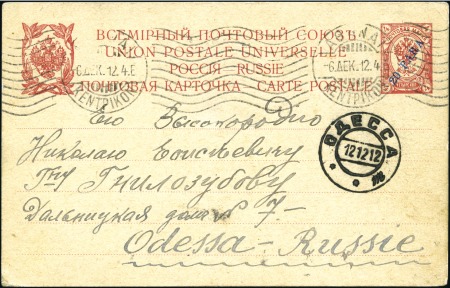 ВСЕМІРНЫЙ ПОЧТОВЫЙ СОЮЗЪ
UNION POSTALE UNIVERSELLE
РОССІЯ RUSSIE
ПОЧТОВАЯ КАРТОЧКА CARTE POSTALE
6.ДЕК.12.4
6.ДЕК.12.4
20 PARA
Его Высокородію
Николаю
Гну Гнилозубову
Дальницкая 7-
Odessa-Russie
ОДЕССА
121212